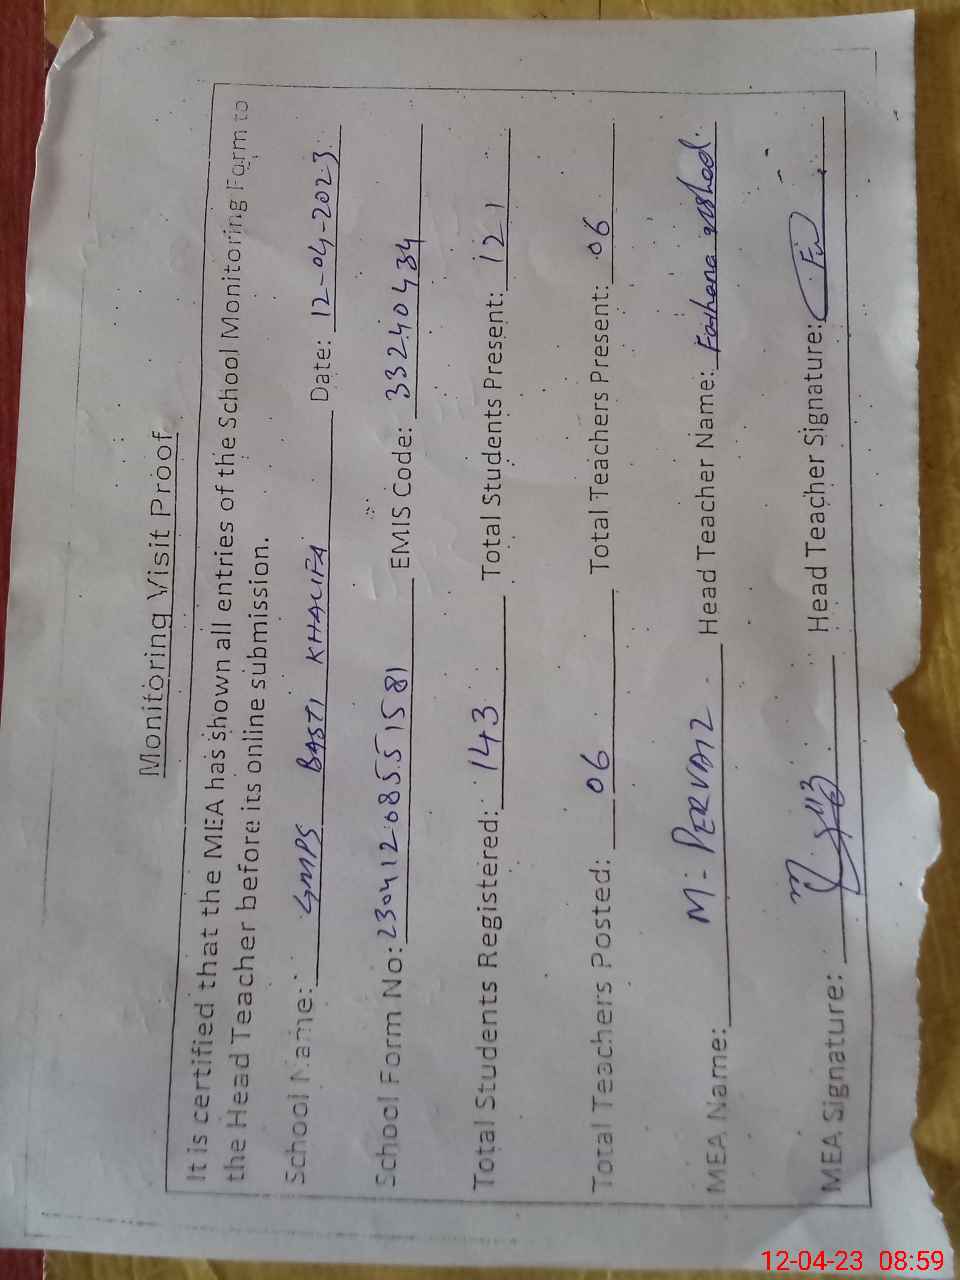 Monitoring Visit Proof
It is certified that the MEA has shown all entries of the School Monitoring Form to
the Head Teacher before its online submission.
School Name: GMPS BASTI KHALIFA Date: 12-04-2023
School Form No: 230412085551581 EMIS Code: 33240434
Total Students Registered: 143 Total Students Present: 121
Total Teachers Posted: 06 Total Teachers Present: 06
MEA Name: M. PERVAIZ Head Teacher Name: Farhana
MEA Signature: Head Teacher Signature:
12-04-23 08:59